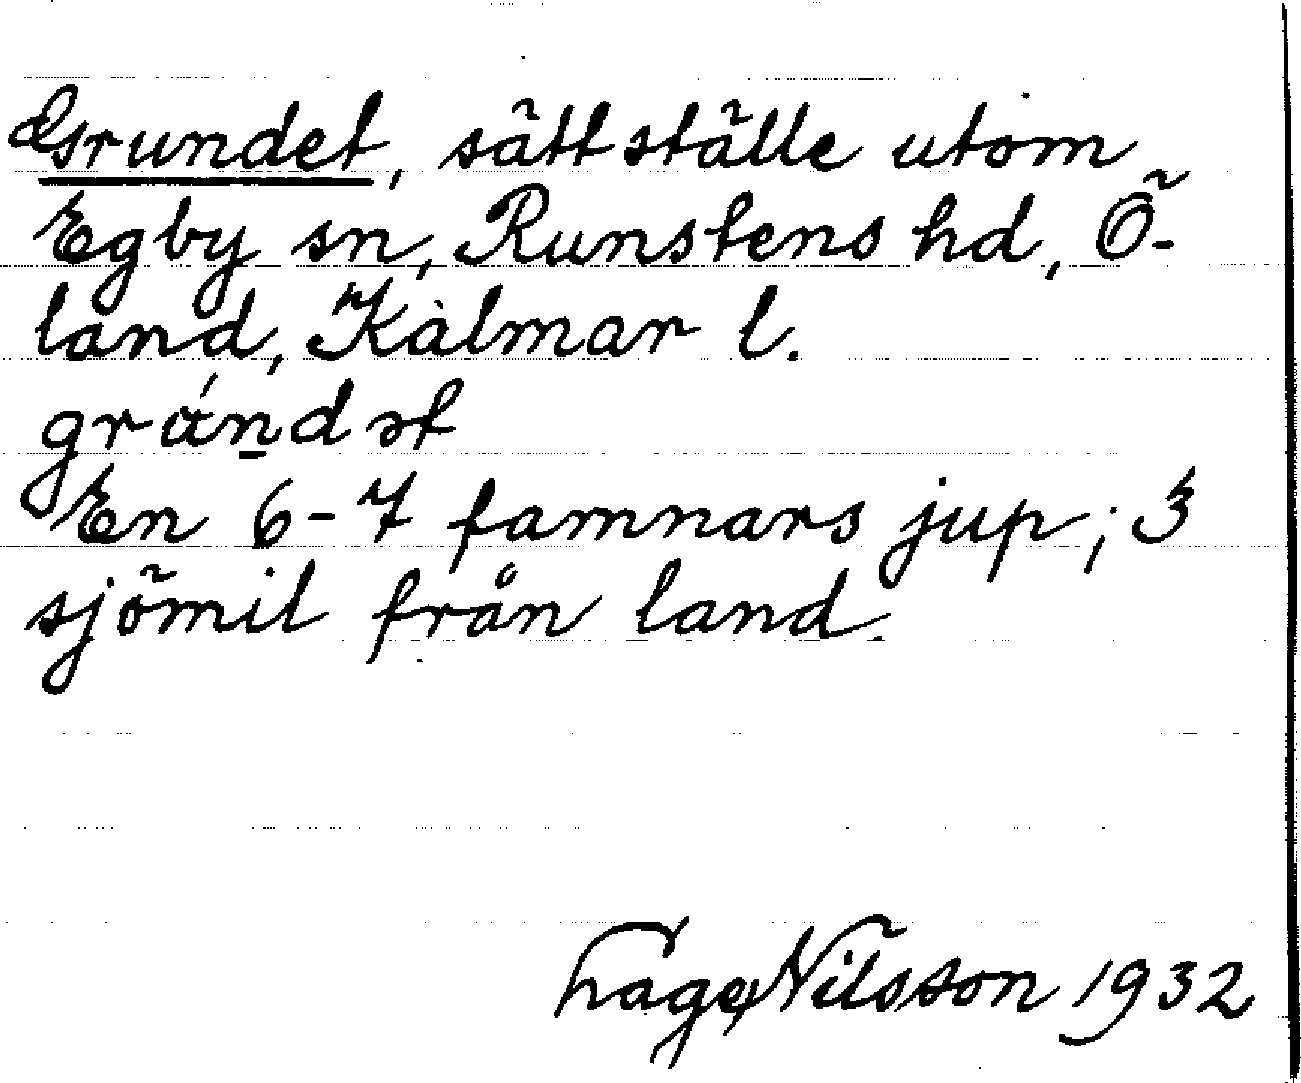 Grundet, sättställe utom
Egby sn, Runstens hd, Ö-
land, Kalmar l.
En 6-7 famnars jup; 3
sjömil från land.
Nilsson 1932